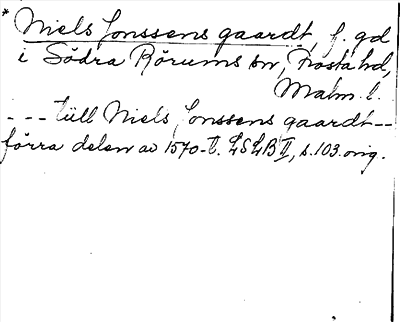 * Niels Jonssens gaardt, f. gd
i Södra Rörums sn, Frosta hd,
Malm. l.
- - - till Niels Jonssens gaardt - -
förra delen av 1570-t. LSLB II, s. 103. orig.